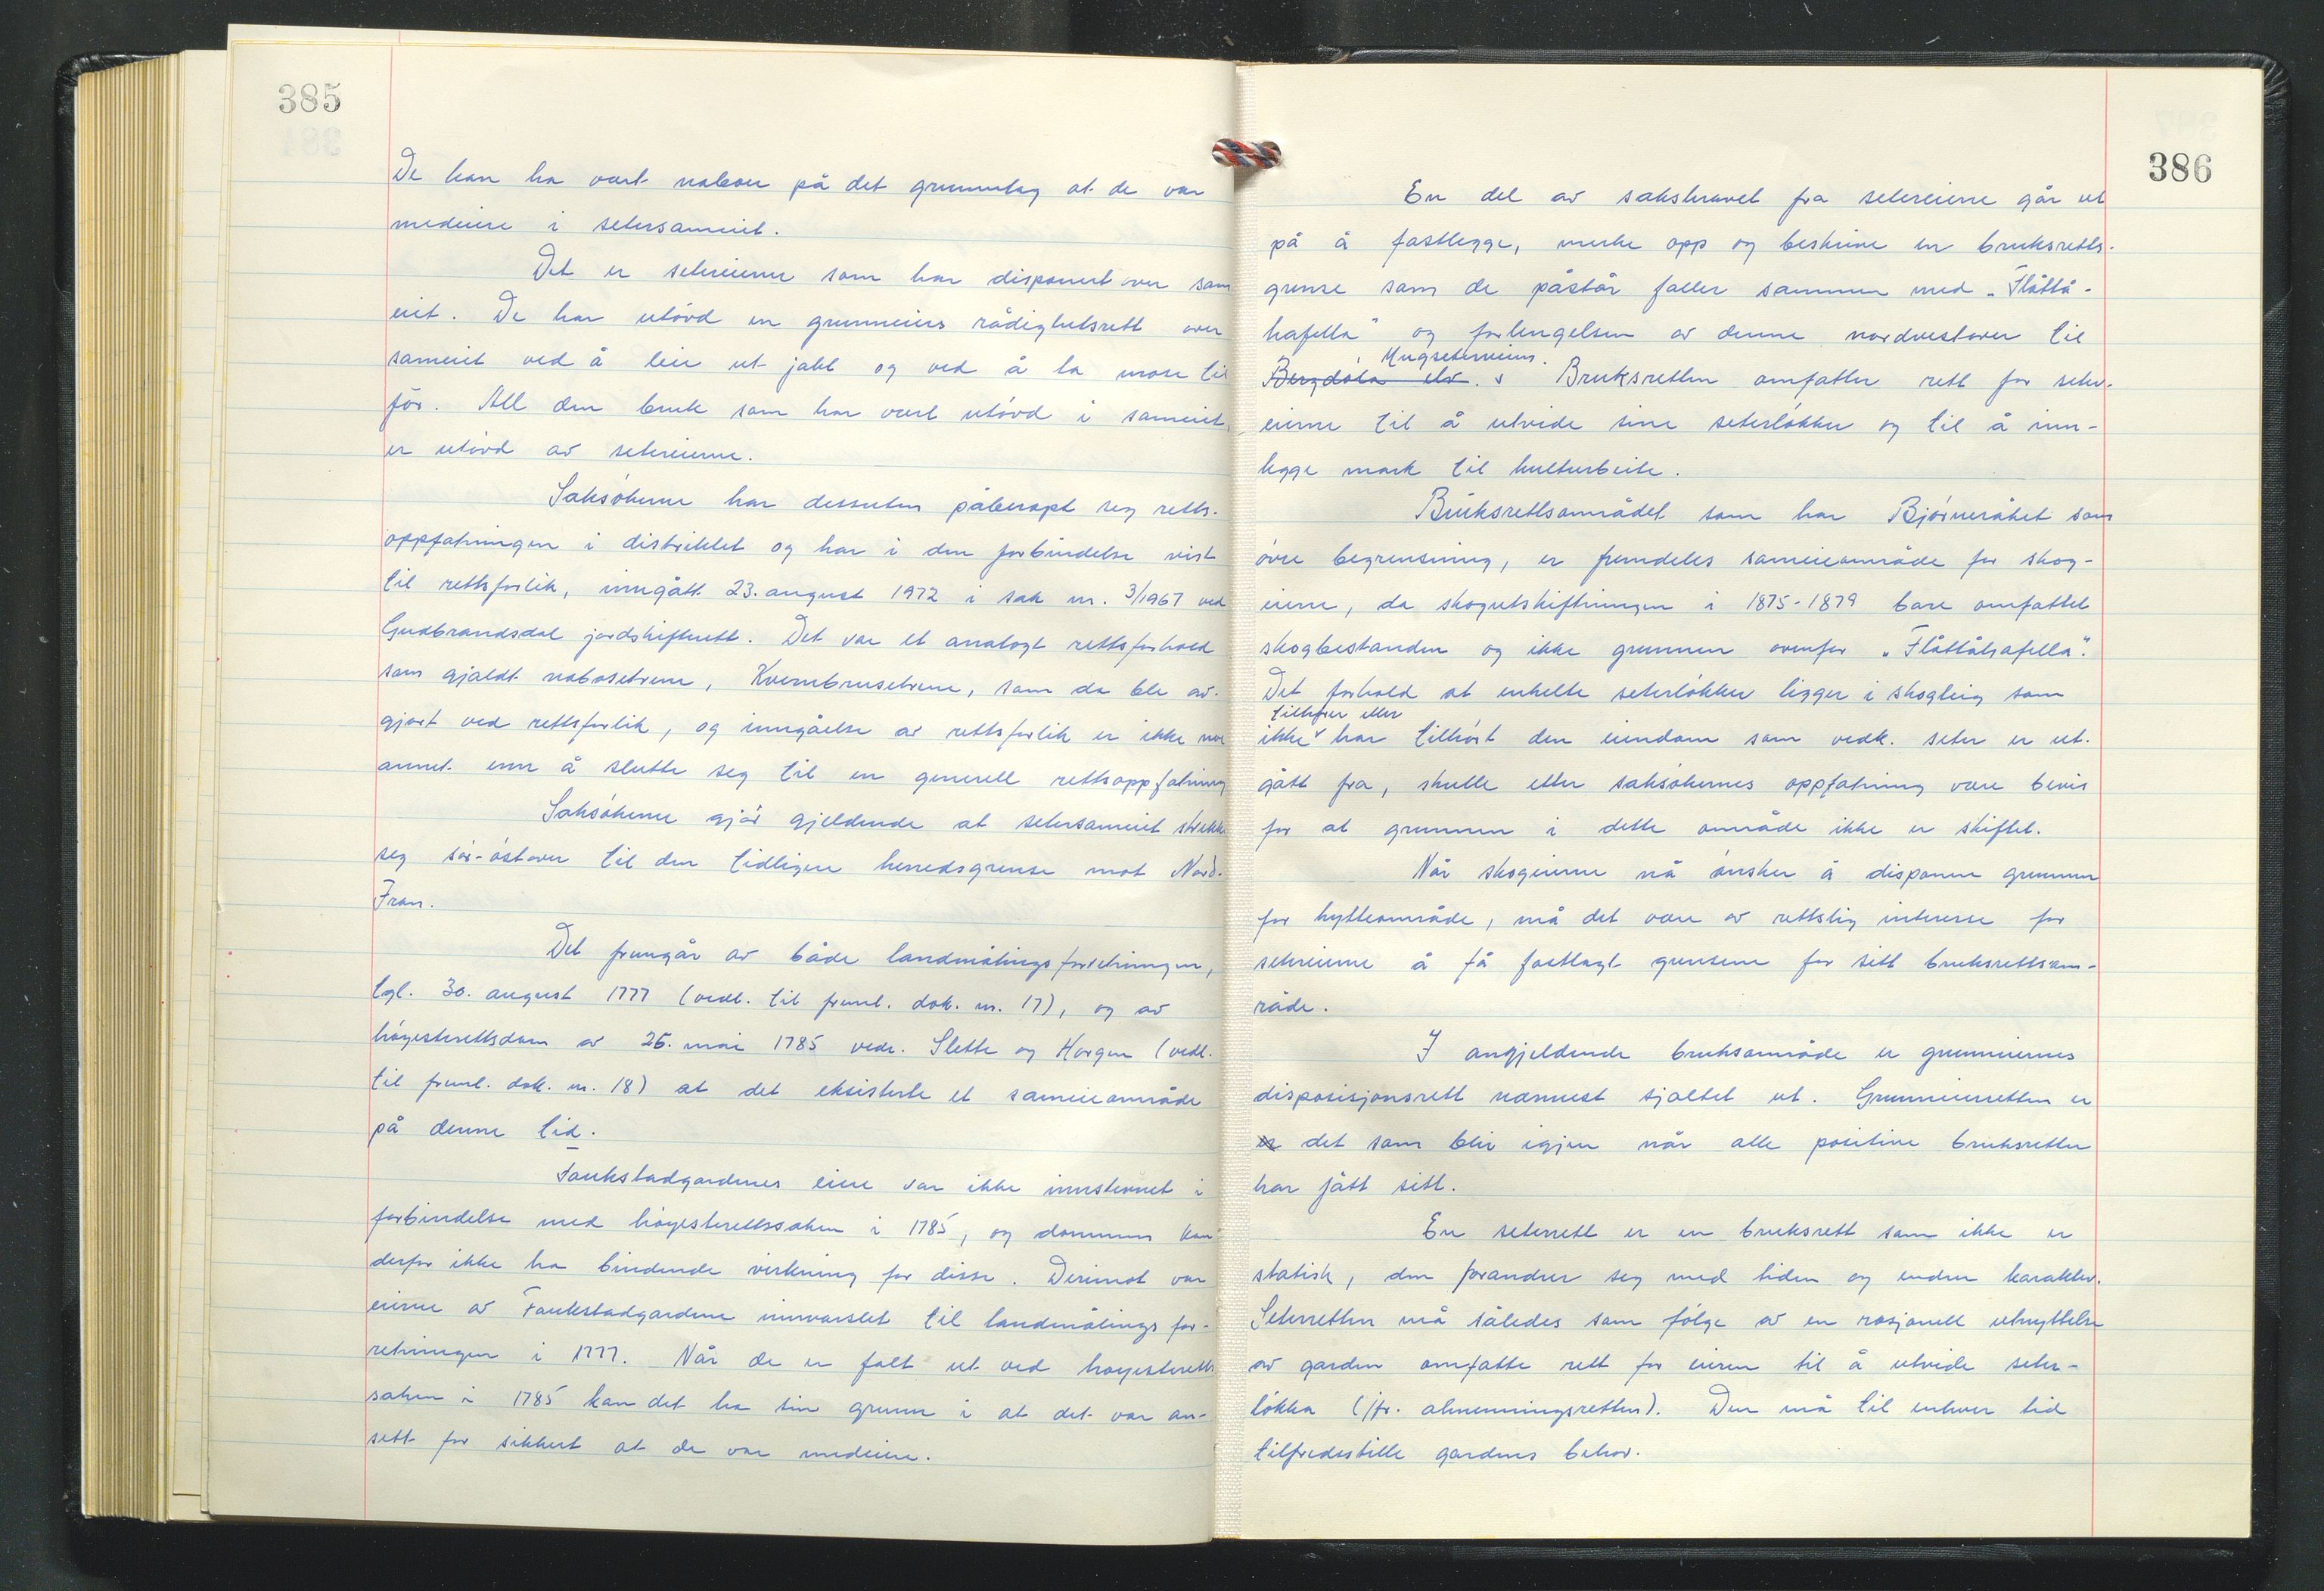 385
De kan ha vært naboer på det grunnlag at de var
medeiere i setersameiet.
Det er setereierne som har disponert over sam
eiet. De har utövd en grunneiers rådighetsrett over
sameiet ved å leie ut jakt og ved å ta mose til
fòr. All den bruk som har vært utövd i sameiet,
er utövd av setereierne.
Saksökerne har dessuten påberopt seg retts-
oppfatningen i distriktet og har i den forbindelse vist
til rettsforlik, inngått 23. august 1972 i sak nr. 3/1967 ved
Gudbrandsdal jordskifterett. Det var et analogt rettsforhold
som gjaldt nabosetrene, Kvernbrusetrene, som da ble av-
gjort ved rettsforlik, og inngåelse av rettsforlik er ikke noe
annet enn å slutte seg til en generell rettsoppfatning
Saksökerne gjör gjeldende at setersameiet strekker
seg sör-östover til den tidligere herredsgrense mot Nord-
Fron.
Det fremgår av både landmålingsforretningen,
tgl. 30. august 1777 (vedl. til freml. dok. nr. 17), og av
höyesterettsdom av 25. mai 1785 vedr. Slette og Horgen (vedl.
til freml. dok. nr. 18) at det eksisterte et sameieområde
på denne tid.
Faukstadgardenes eiere var ikke innstevnet i
forbindelse med höyesterettssaken i 1785, og dommen kan
derfor ikke ha bindende virkning for disse. Derimot var
eierne av Faukstadgardene innvarslet til landmålingsfor-
retningen i 1777. Når de er falt ut ved höyesteretts
saken i 1785 kan det ha sin grunn i at det var an-
sett for sikkert at de var medeiere.
386
En del av sakskravet fra setereierne går ut
på å fastlegge, merke opp og beskrive en bruksretts-
grense som de påstår faller sammen med „Flåttå-
hafella" og forlengelsen av denne nordvestover til
Mugseterveien.
Bergdöla elv. v Bruksretten omfatter rett for seter-
eierne til å utvide sine seterlökker og til å inn-
legge mark til kulturbeite.
Bruksrettsområdet som har Björneråket som
övre begrensning, er fremdeles sameieområde for skog-
eierne, da skogutskiftningen i 1875-1879 bare omfattet
skogbestanden og ikke grunnen ovenfor „Flåttåhafella".
Det forhold at enkelte seterlökker ligger i skogteig som
tilhörer eller
ikke v har tilhört den eiendom som vedk. seter er ut-
gått fra, skulle etter saksökernes oppfatning være bevis
for at grunnen i dette område ikke er skiftet.
Når skogeierne nå önsker å disponere grunnen
for hytteområde, må det være av rettslig interesse for
setereierne å få fastlagt grensene for sitt bruksrettsom-
råde.
I angjeldende bruksområde er grunneiernes
disposisjonsrett nærmest sjaltet ut. Grunneierretten er
er det som blir igjen når alle positive bruksretter
har fått sitt.
En seterrett er en bruksrett som ikke er
statisk, den forandrer seg med tiden og endrer karakter.
Seterretten må således som fölge av en rasjonell utnyttelse
av garden omfatte rett for eieren til å utvide seter-
lökka (jfr. almenningsretten). Den må til enhver tid
tilfredsstille gardens behov.